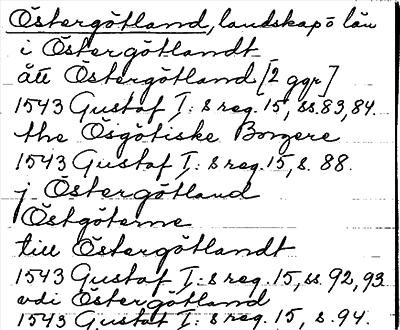 Östergötland, landskap o län
i Östergötlandt
ått Östergötland [2 ggr]
1543 Gustaf I:s reg. 15, ss. 83, 84.
the Ösgötiske Borgere
1543 Gustaf I:s reg. 15, s. 88.
j Östergötland
Östgöterne
till Östergötlandt
1543 Gustaf I:s reg. 15, ss. 92, 93
vdi Östergötland
1543 Gustaf I:s reg. 15, s. 94.